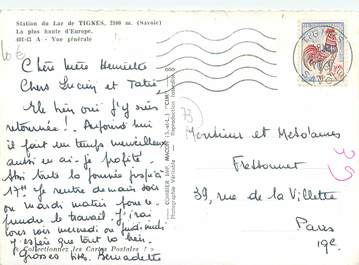 Station du Lac de TIGNES, 2100 m. (Savoie)
La plus haute d'Europe.
A - Vue générale
Chère Mère Henriette
Chers Lucien et Tatie
Eh bien oui j'y suis
retournée! Aujourd'hui
il fait un temps merveilleux
aussi en ai-je profité
toute la journée jusqu'à
17H je rentre demain soir
ou mardi matin pour
prendre le travail. J'irai
vous voir mercredi ou jeudi midi
j'espère que tout va bien
Grosses bises Bernadette
Collectionnez les Cartes Postales !
COMBIER IMP. MACON (S.-&-L.) "CIM"
Photographie Véritable - Reproduction Interdite
TIGNES
SAVOIE
73
Monsieur et Mesdames
Fressonnet
39, rue de la Villette
Paris
19e.